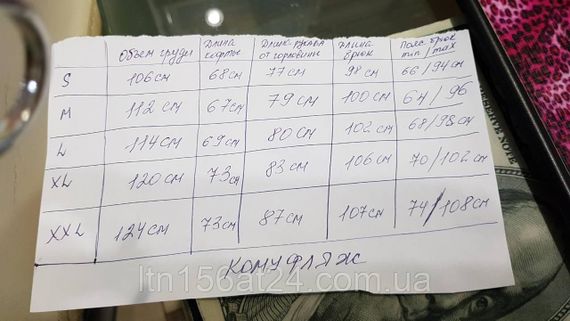 Объем груди Длина кофты Длина рукава от горловины Длина брюк Пояс. брюк min / max
S 106 см 68 см 77 см 98 см 66/94 см
M 112 см 67 см 79 см 100 см 64/96
L 114 см 69 см 80 см 102 см 68/98 см
XL 120 см 73 см 83 см 106 см 70/102 см
XXL 124 см 73 см 87 см 107 см 74/108 см
комуфляж
ltn156at24.com.ua
NOTE